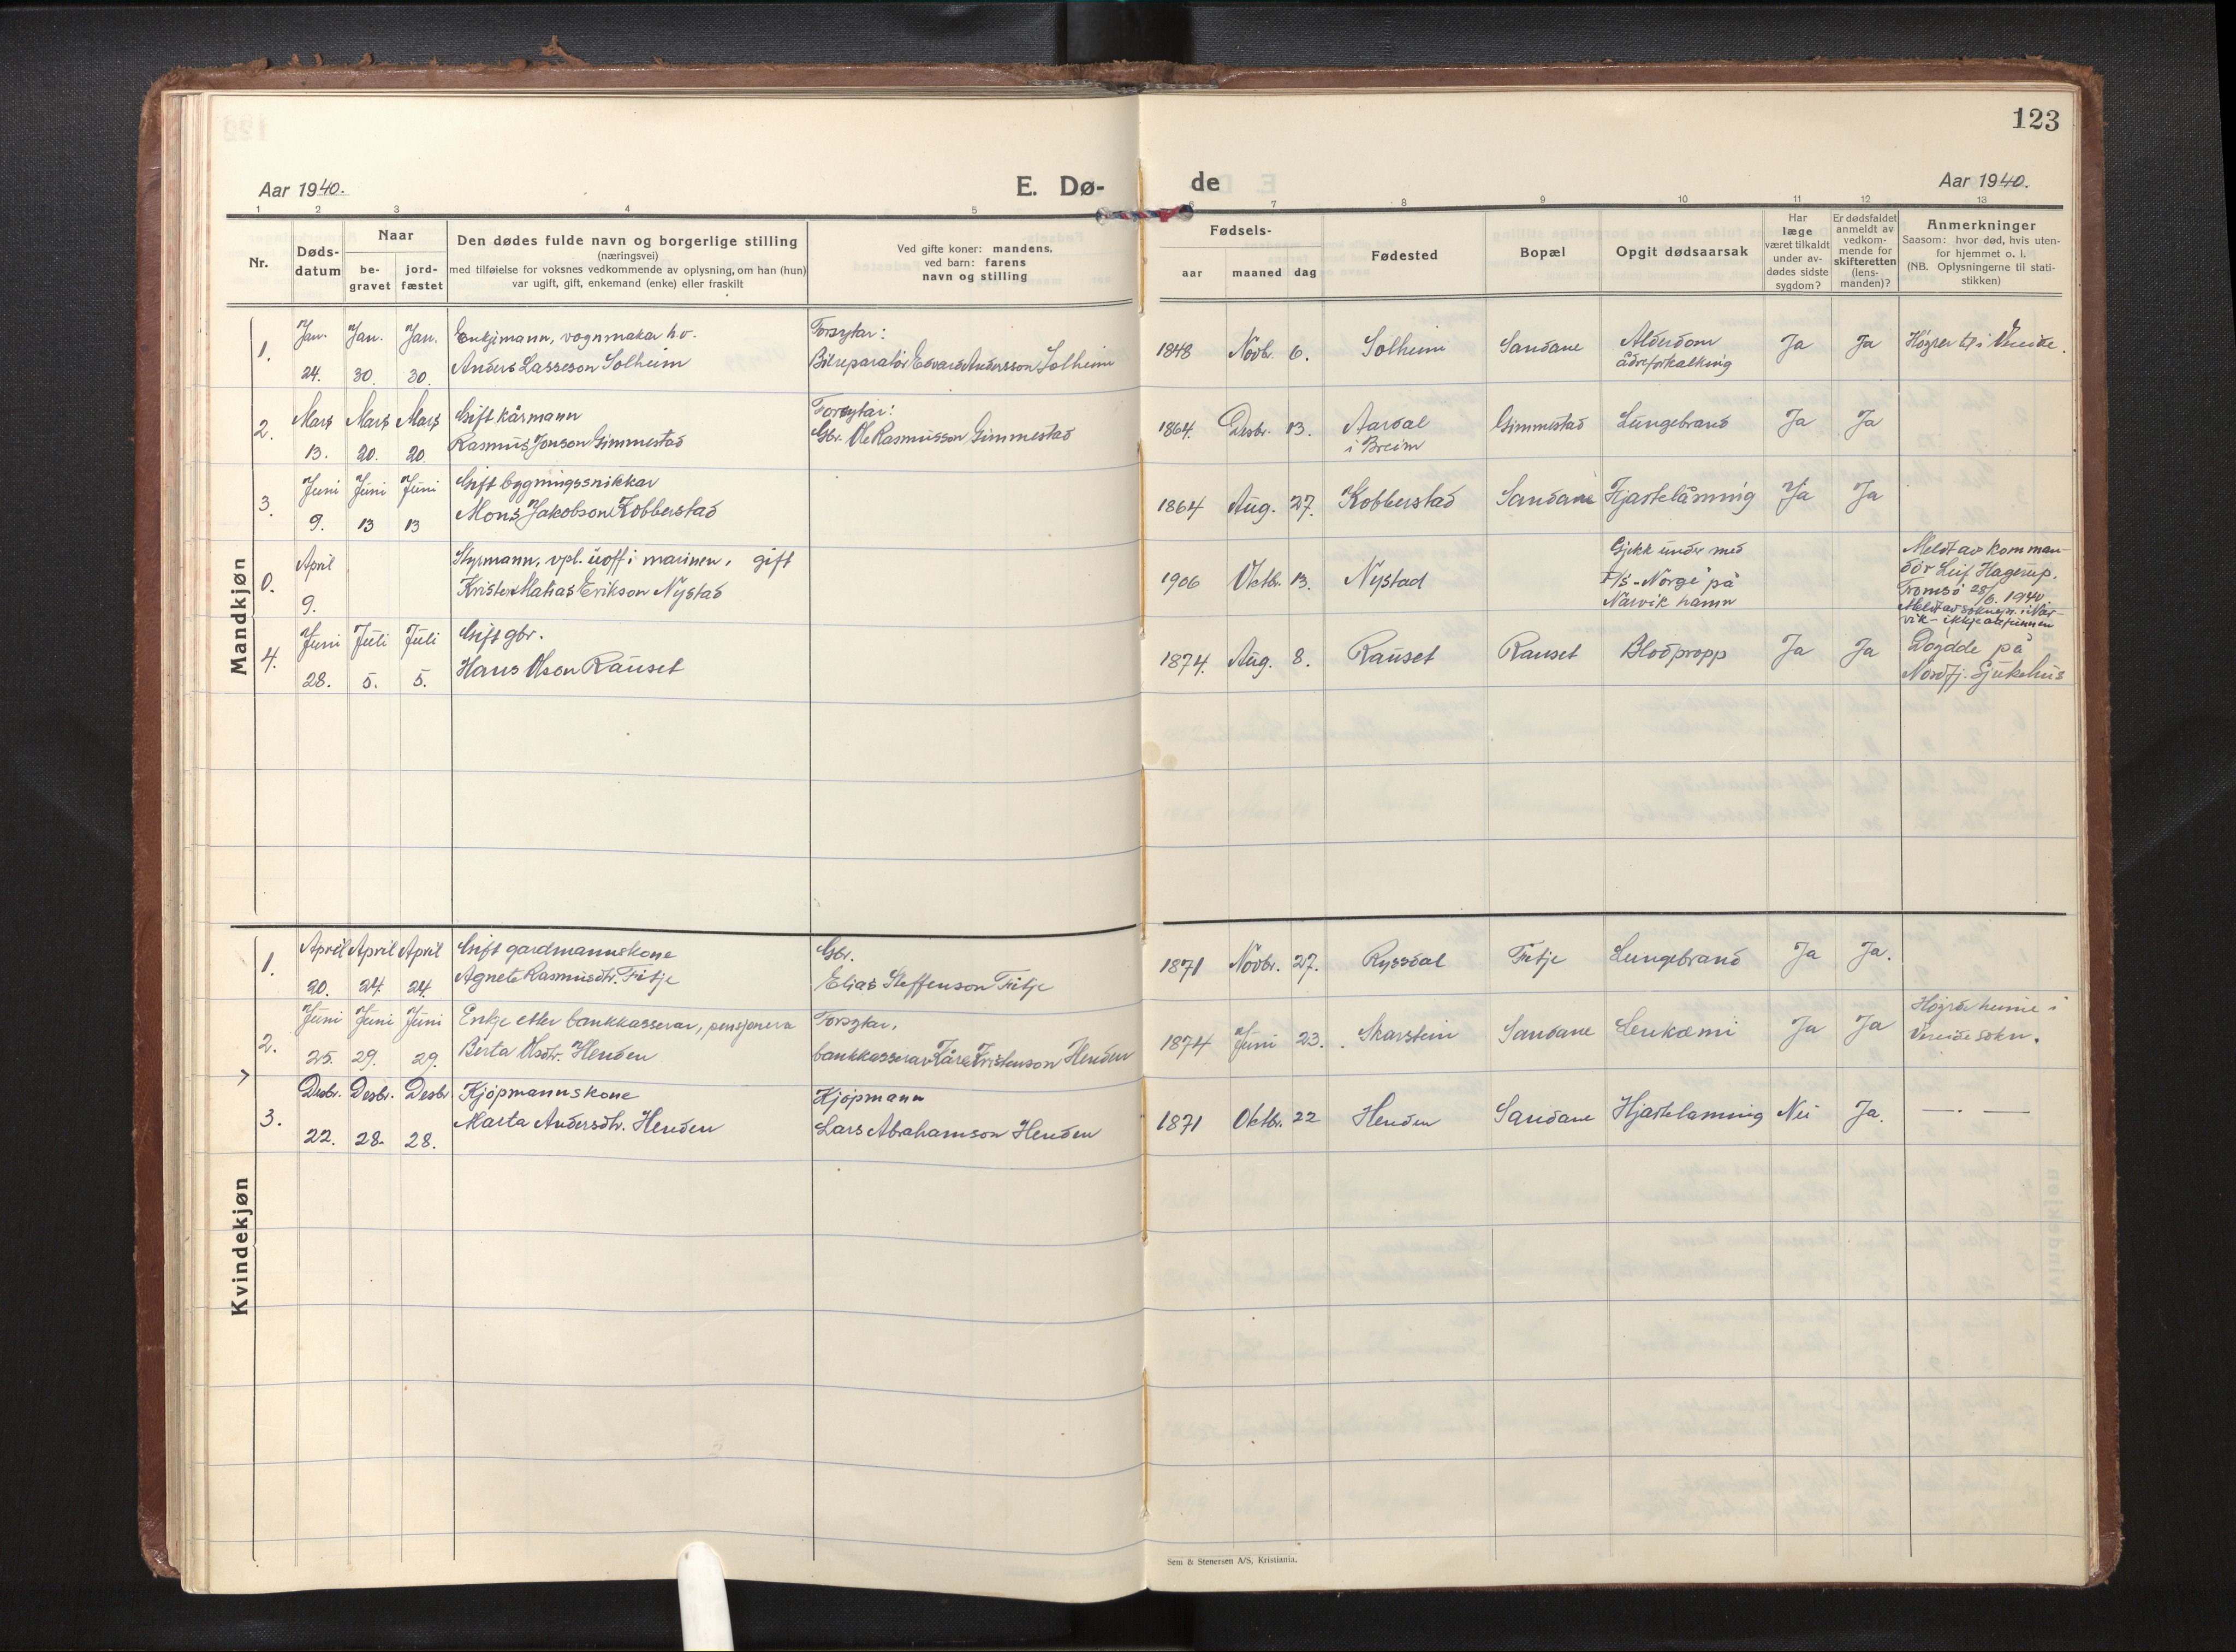 123
Aar 1940.
E. Dø-
de
Aar 1940.
1 2 3 4 5 6 7 8 9 10 11 12 13
Nr.
Døds-
datum
Naar
be-
gravet
jord-
fæstet
Den dødes fulde navn og borgerlige stilling
(næringsvei)
med tilføielse for voksnes vedkommende av oplysning, om han (hun)
var ugift, gift, enkemand (enke) eller fraskilt
Ved gifte koner: mandens,
ved barn: farens
navn og stilling
Fødsels-
aar maaned dag
Fødested
Bopæl
Opgit dødsaarsak
Har
læge
været tilkaldt
under av-
dødes sidste
sygdom?
Er dødsfaldet
anmeldt av
vedkom-
mende for
skifteretten
(lens-
manden)?
Anmerkninger
Saasom: hvor død, hvis uten-
for hjemmet o. l.
(NB. Oplysningerne til stati-
stikken)
Mandkjøn
1. Jan. Jan. Jan. Enkjemann, vognmakar h.v. Forsytar:
24. 30. 30. Anders Lasseson Solheim Bilreparatør Edvard Andersson Solheim
1848 Novbr. 6. Solheim Sandane Alderdom Ja Ja Høyrer til i Vereide.
åreforkalkning
2. Mars Mars Mars Gift kårmann Forsytar:
13. 20. 20. Rasmus Jonson Gimmestad Gbr. Ole Rasmusson Gimmestad
1864. Desbr. 13. Aardal Gimmestad Lungebrand Ja Ja
i Breim
3. Juni Juni Juni Gift bygningssnikkar
9. 13 13 Mons Jakobson Kobberstad
1864 Aug. 27. Kobberstad Sandane Hjartelåmning Ja Ja
0. April Styrmann, vpl. uoff. i marinen, gift
9. Kristen Matias Erikson Nystad
1906 Oktbr. 13. Nystad
Gjekk under med
P/S "Norge" på
Narvik hamn
Meldt av komman-
dør Leif Hagerup,
Tromsø 28/6. 1940.
Meldt av soknepr. i Nar-
vik - ikkje attfunnen
4. Juni Juli Juli Gift gbr.
28. 5. 5. Hans Olson Rauset
1874. Aug. 8. Rauset Rauset Blodpropp Ja Ja Døydde på
Nordfj. Sjukehus
Kvindekjøn
1. April April April Gift gardmannskone Gbr.
20. 24. 24. Agnete Rasmusdtr. Fitje Elias Steffenson Fitje
1871 Novbr. 27. Ryssdal Fitje Lungebrand Ja Ja.
2. Juni Juni Juni Enkje etter bankkasserar, pensjonera Forsytar,
25. 29. 29. Berta Olsdtr. Henden bankkasserar Kåre Kristenson Henden
1874 Juni 23. Skarstein Sandane Leukæmi Ja Ja Høyrer heime i
Vereide sokn.
3. Desbr. Desbr. Desbr. Kjøpmannskone Kjøpmann
22. 28. 28. Marta Andersdtr. Henden Lars Abrahamson Henden
1871 Oktbr. 22 Henden Sandane Hjartelamning Nei Ja. — . —
Sem & Stenersen A/S, Kristiania.